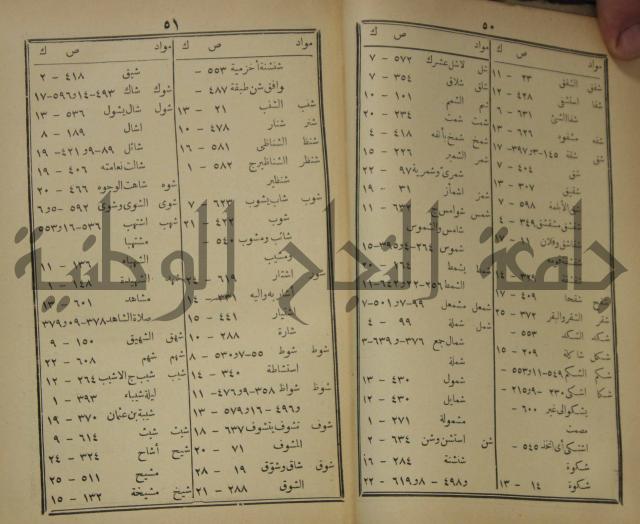 ٥٠
مواد ص ك
شفق الشفق ٢٣ - ١١
شفا استشفى ٤٢٨ - ١٢
شفا الشئ ٦٣١ - ٦
شفه مشفوه ٦٢٦ - ١٣
شق شقة ١٤٥-٣و٣٩٧-١٧
شق ٤٠٤ - ٧
شقيق ٣٠٧ - ١٣
شق الأبلمة ٥٩٨ - ٧
شقشق مشقشق ٣٤٩ - ٤
١١ - ١٧
شقح شقحا ٤٠٩ - ١٧
شقر الشقر والبقر ٣٧٢ - ٢٥
شكد الشكد ٥٥٣ -
شكل شاكلة ٢٠٩ - ١٥
شكم الشكم ٥٤٩-١١و٥٥٣
شكا اشكى ٢٣٠-٩و٢١٥-
يشكوالى غير ٦٠٠ -
مصمت
اشتكى أى اتخذ ٥٤٥ -
شكوة
شكوة ١٤ - ١٣
مواد ص ك
شل لاشل عشرك ٥٧٢ - ٧
شلق شلاق ٣٥٤ - ٧
شم الشمم ١٠١ - ١٠
شمت شمت ٢٣٤ - ٢٠
شمخ شمخ بأنفه ٤١٨ - ٤
شمر الشمير ٢٢٦ - ١٥
شمرى وشمرية ٩٧ - ٢٢
شمز اشمأز ٣١ - ١٩
شمس شوامس ٦٣٢ - ١١
شامس والشموس
شموس ٢٦٤-٤و٣٩-١٥
شمط يشمط ١٦٤ - ٢٠
الشمط ٢٥٦-٢٢و٦٤٢-١١
شمعل مشمعل ٩٩-٧و٥٠١-٧
شمل شملة ٩٩ - ٤
شمال جمع ٣٧٦-و٦٣٩-٣
شملة
شمول ٤٣٠ - ١٣
شمايل ٤٣٠ - ١٢
مشمولة ٢٧١ - ١
شن استشن وشن ٦٣٤ - ٢
شنشنة ٢٨٤ - ١٦
و٤٩٨-٨و٦١٩-٢٢
٥١
مواد ص ك
شنشنة أخزمية ٥٥٣ -
وافق شن طبقة ٤٨٧ -
شنب الشنب ٢١ - ١٣
شنر شنار ٤٧٨ - ١٠
شنظ الشناظى ٥٨١ - ١٦
شنظر الشناظير ج ٥٨٢ - ١
شنظير
شوب شاب يشوب ٦٢٣ - ٧
شوب ٤٢٢ - ٢١
شائب ومشوب ٥٤٠ -
ومشيب
شور اشتار ٦١٩ - ٢٤
أشار به واليه ٣٣١ - ١٤
اشتيار ٤٤١ - ١٥
شارة ٢٨٨ - ١٠
شوط شوط ٥٥-٧و٥٣٠-٨
استشاطة ٣٤٠ - ١٤
شوظ شواظ ٣٥٨-٩و٤٧٦-١١
و٤٩٦-١٦و٥٧٩-١٣
شوف تشوف يتشوف ٦٣٧ - ١٨
المشوف ٧١ - ٢٠
شوق شاق وشوّق ١٩ - ٢٨
الشوق ٢٨٨ - ٢١
مواد ص ك
شيق ٤١٨ - ٢
شوك شاك ٤٩٣-١٤و٥٩٦-١٧
شول شال يشول ٥٣٦ - ١٣
اشال ١٨٩ - ٨
شائل ٨٩-٩و٤٢١-١٩
شالت نعامته ٤٠٦ - ١٩
شوه شاهت الوجوه ٤٦٦ - ٢٠
شوى الشوى وشوى ٥٩٢ -٥و٦
شهب اشتهب ٥٣٦-١٦و٥٥٣
مشتهبا
الشهباء ١٣٦ - ١١
شهد الشهيدة ١٤٨ - ١
مشاهد ٦٠١ - ١٣
صلاة الشاهد ٣٧٨-٩و٣٧٩
شهق الشهيق ١٥٠ - ٩
شهم شهم ٦٠٨ - ٢٢
شيب شيب ج الاشيب ٢٦٤ - ١٢
ليلة شيباء ٣٩٣ - ١
شيبة بن عثمان ٣٧٠ - ١٩
شيث شيث ٦١٤ - ٩
شيح أشاح ٣٢٤ - ٢٤
مشيح ٥١١ - ٢٥
شيخ مشيخة ١٣٢ - ١٥
جامعة النجاح الوطنية